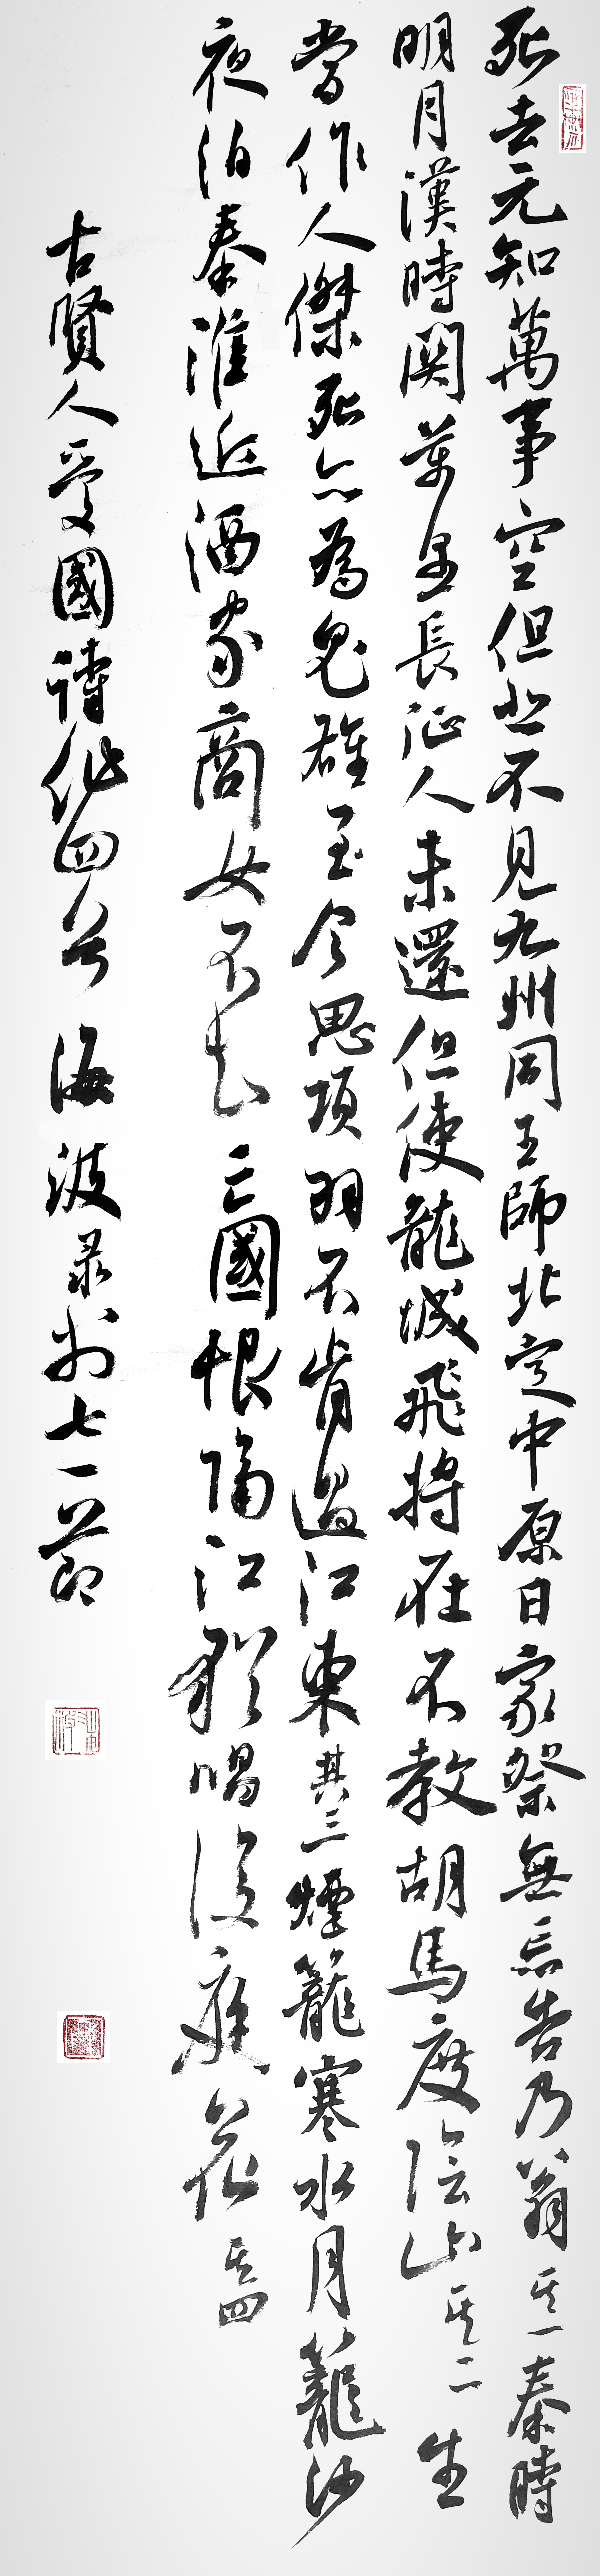 死去元知萬事空但悲不見九州同王師北定中原日家祭無忘告乃翁其一秦時
明月漢時關萬里長征人未還但使龍城飛將在不教胡馬度陰山其二生
當作人傑死亦為鬼雄至今思項羽不肯過江東其三煙籠寒水月籠沙
夜泊秦淮近酒家商女不知亡國恨隔江猶唱後庭花其四
古賢人愛國詩作四首 海波录於七一節